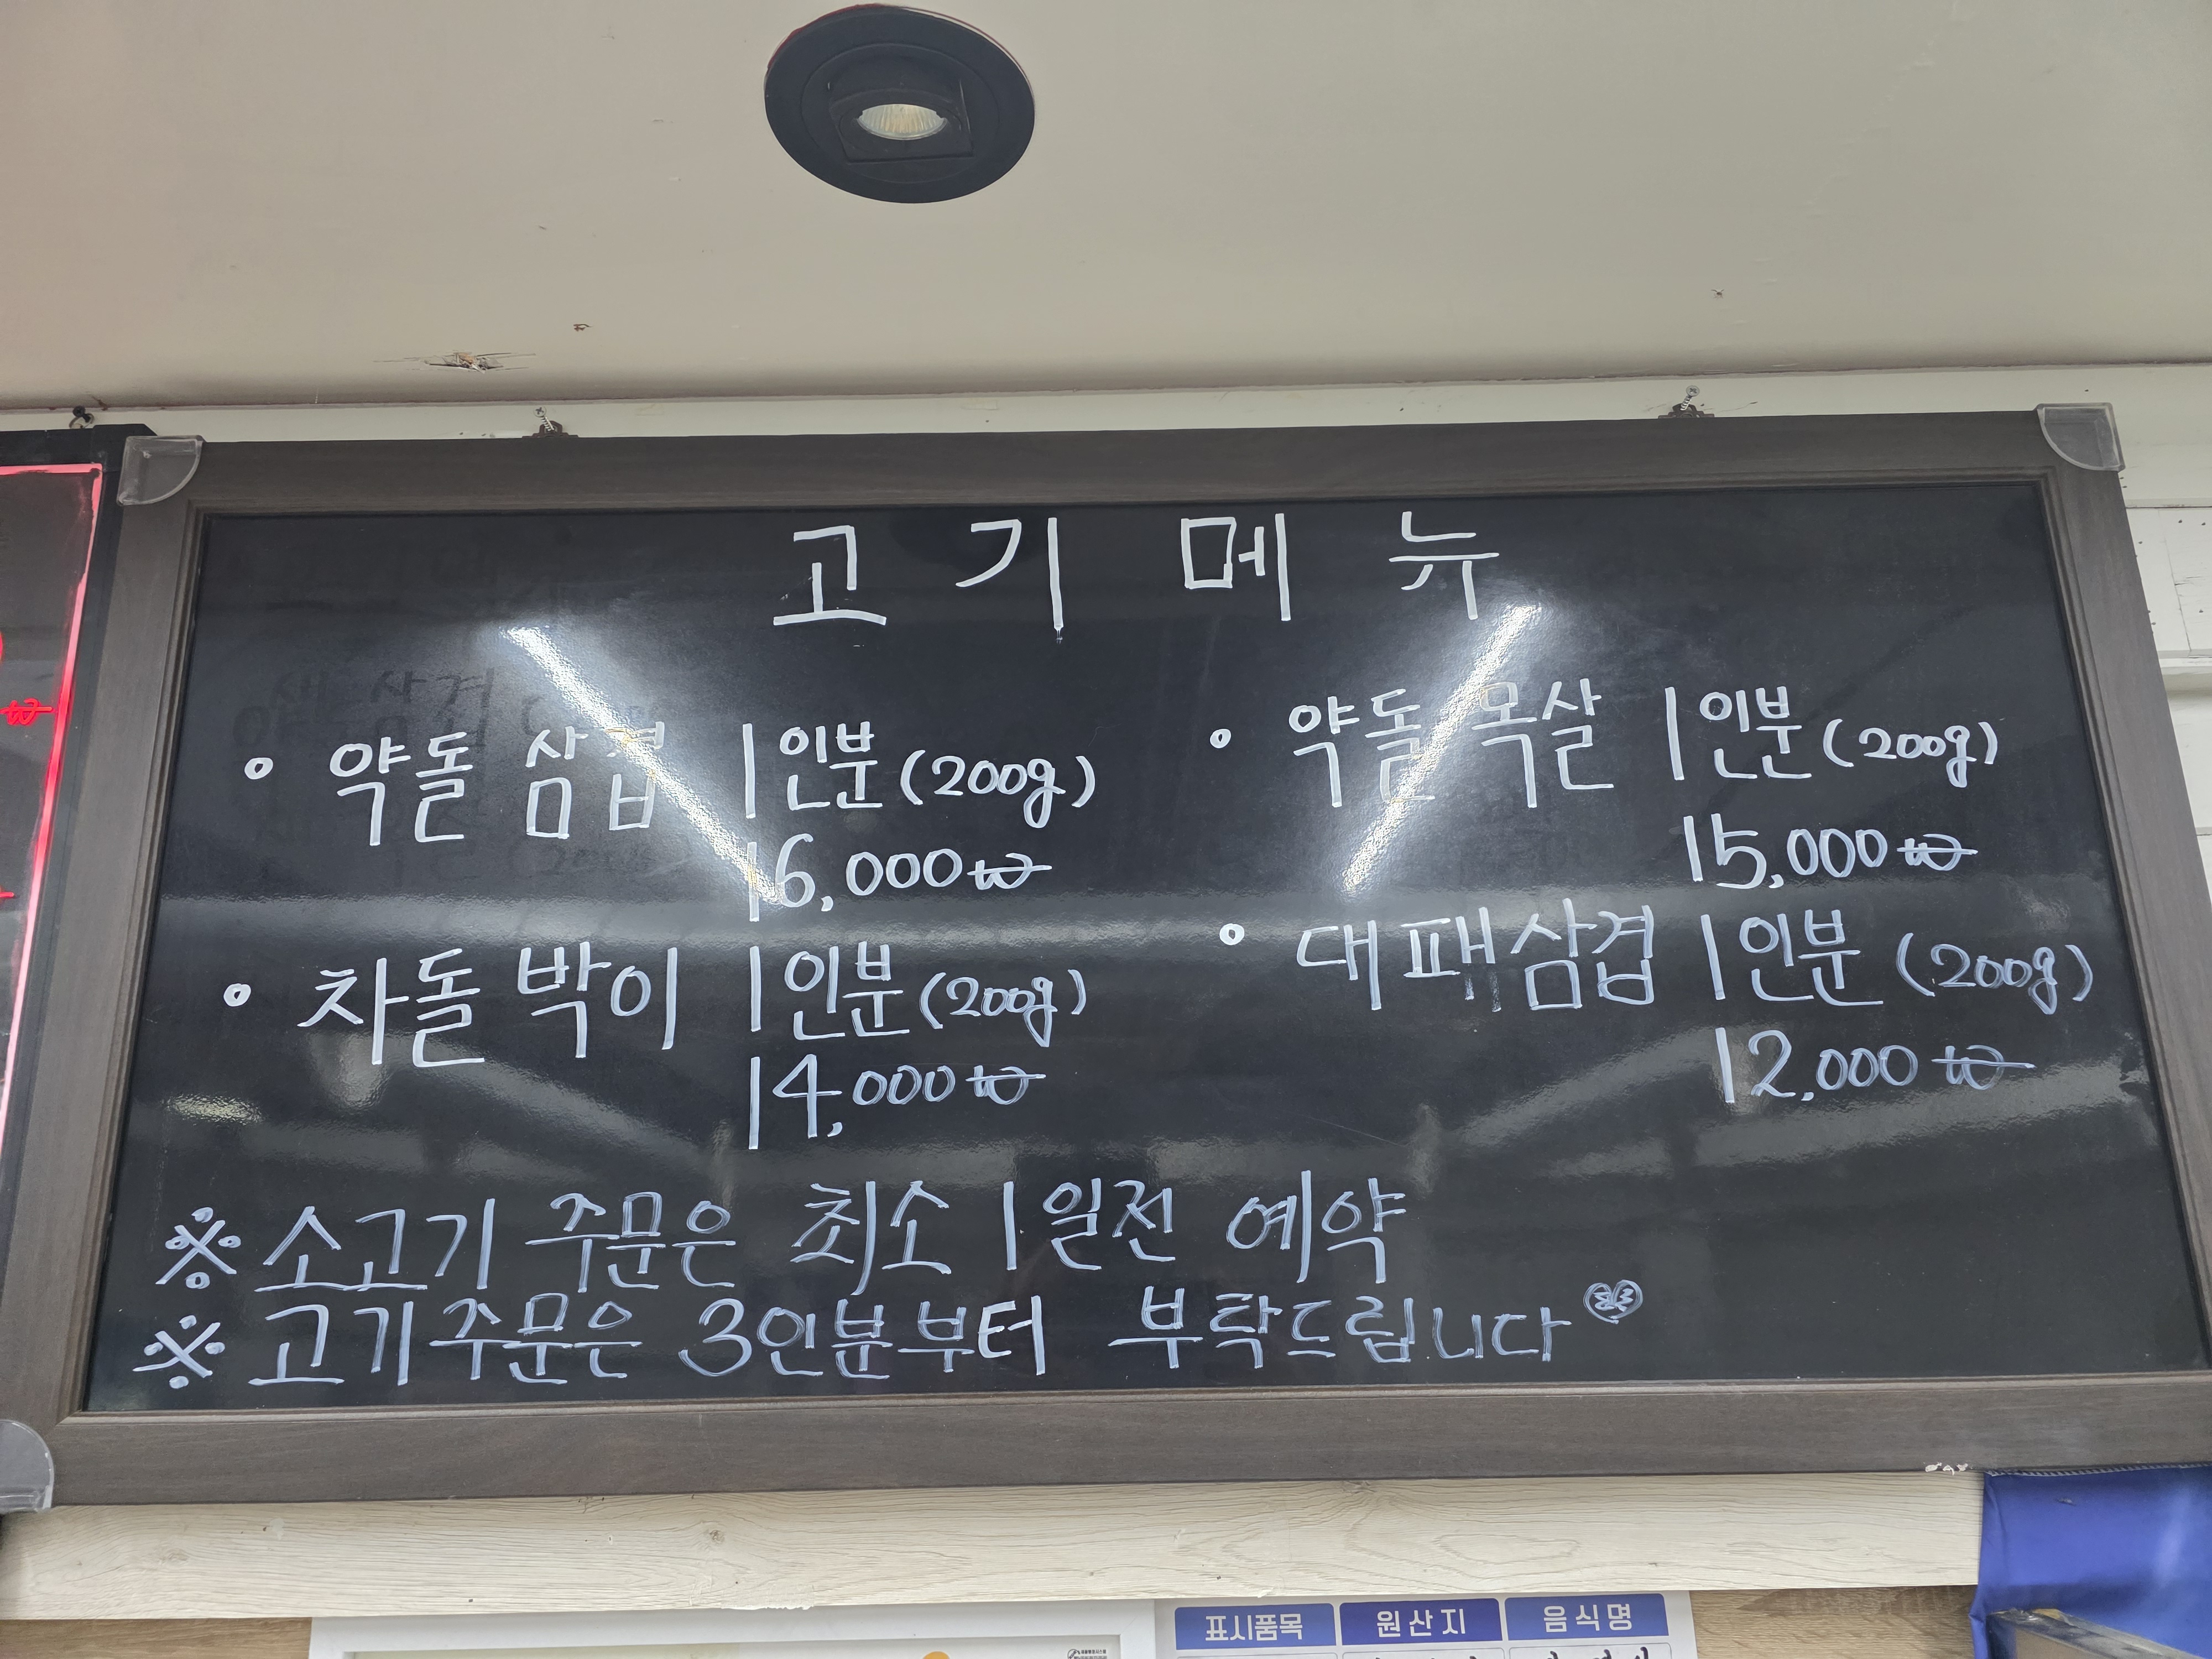 고기메뉴
• 약돌 삼겹 1인분(200g)
16,000₩
• 약돌 목살 1인분(200g)
15,000₩
• 차돌박이 1인분(200g)
14,000₩
• 대패삼겹 1인분(200g)
12,000₩
※ 소고기 주문은 최소 1일전 예약
※ 고기주문은 3인분부터 부탁드립니다
표시품목 원산지 음식명